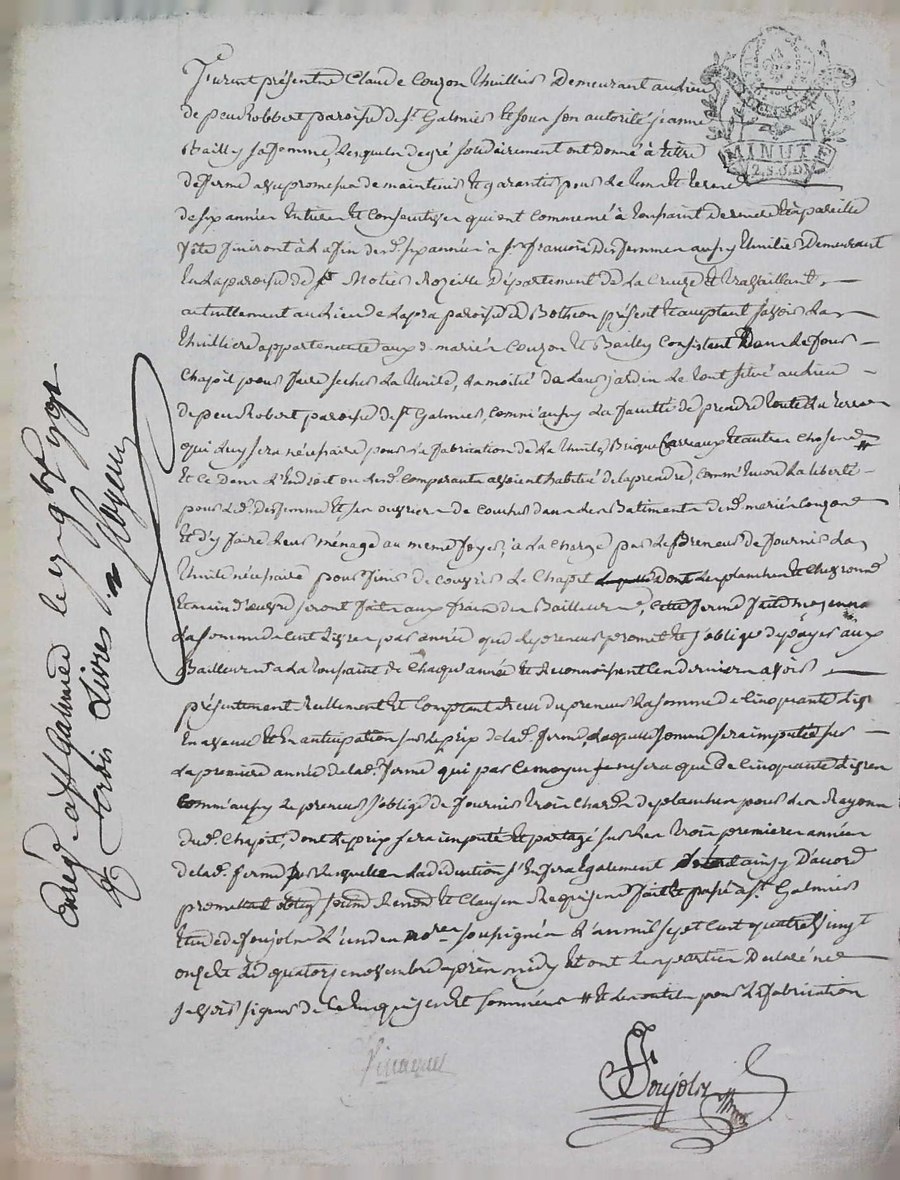 Furent présents Claude Couzon thuillier Demeurant audrieu
de peu Robbert paroisse de St Galmier et sous son autorité jeanne
Bailly sa femme, Lesquels de gré solidairement ont donné à titre
de ferme avec promesse de maintenir et garantir pour le tems et terme
de six années Entieres et Consecutives qui ont commencé à toussaint derniere et à pareille
fête finiront à la fin desd. six années à Sr francois Desfemmes aussy thuilier Demeurant
En la paroisse de St Rozeille Département de La Creuze et travaillant
actuellement au lieu de Lapra paroisse de Bothéon présent et acceptant savoir la
thuilliere appartenante auxd. mariés Couzon et Bailly Consistant Dans le four
Chapit pour faire secher la thuile, La moitié de leur jardin Le tout situé audrieu
de peu Robert paroisse de St Galmier, comm'aussy La faculté de prendre toute la terre
qui luy sera nécessaire pour la fabrication de la thuile, Brique Carreaux et autres choses #
Et ce dans L'Endroit ou lesd. comparants avoient habitué de la prendre, comm'encore la liberté
pour led. Desfemmes et ses ouvriers de coucher dans les Batiments desd. mariés Couzon
Et d'y faire leur ménage au meme foyer, à la charge par le preneur de fournir la
thuile nécessaire pour finir de couvrir le Chapit dont les planches et chevrons
Et main d'œuvre seront faits aux frais des Bailleurs, Cette ferme faite moyennant
La somme de Cent Livres par année que le preneur promet et s'oblige de payer aux
Bailleurs à la toussaint de Chaque année Et Reconnoissent Ces derniers avoir
présentement Reellement Et Comptant Reçu du preneur la somme de cinquante Livres
En avance Et En anticipation sur le prix de lad. ferme, Laquelle somme sera imputée sur
La premiere année de lad. ferme qui par ce moyen ne sera que de Cinquante Livres
Comm'aussy Le preneur s'oblige de fournir trois Chards de planches pour les Rayons
dud. Chapit, dont le prix sera imputé et partagé sur les trois premieres années
de lad. ferme sur lesquelles La déduction s'En fera également ainsy D'accord
promettant Renon. Et Clauses Requises fait et passé à St Galmier
Etude de foujols L'un des nores soussignés L'an mil sept cent quatre vingt
onze et le quatorze novembre après midy Et ont les parties Déclaré ne
savoir signer de ce Enquises et sommées # Et les outils pour la fabrication
foujols nre
Enregé. à St Galmier le 9bre 1791
Trois Livres
MINUTE
12.S.6.D